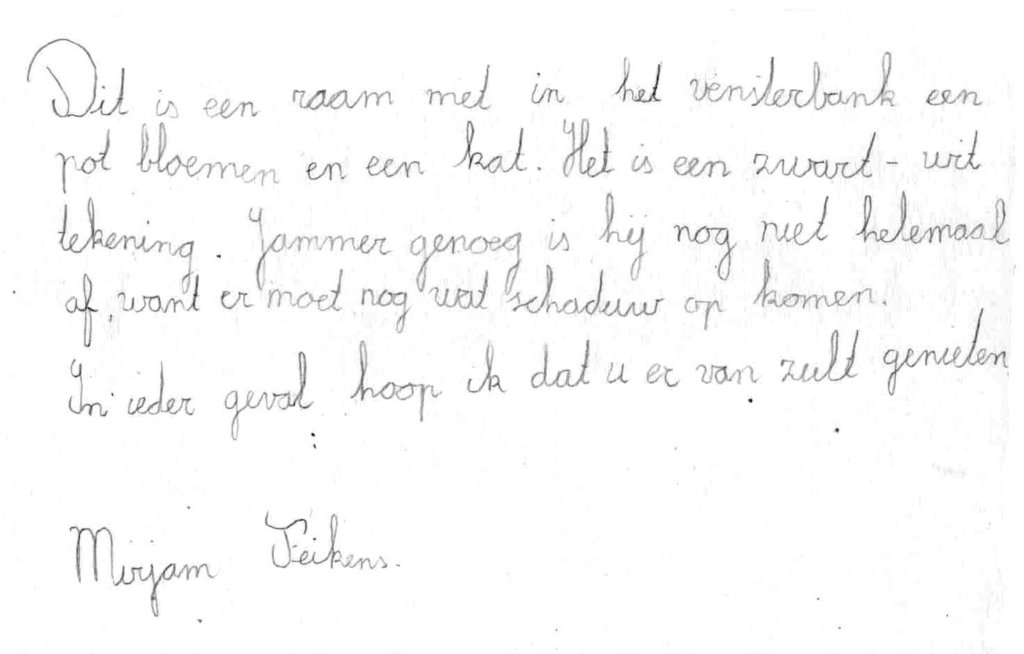 Dit is een raam met in het vensterbank een
pot bloemen en een kat. Het is een zwart - wit
tekening. Jammer genoeg is hij nog niet helemaal
af, want er moet nog wat schaduw op komen.
In ieder geval hoop ik dat u er van zult genieten
Mirjam Feikens.